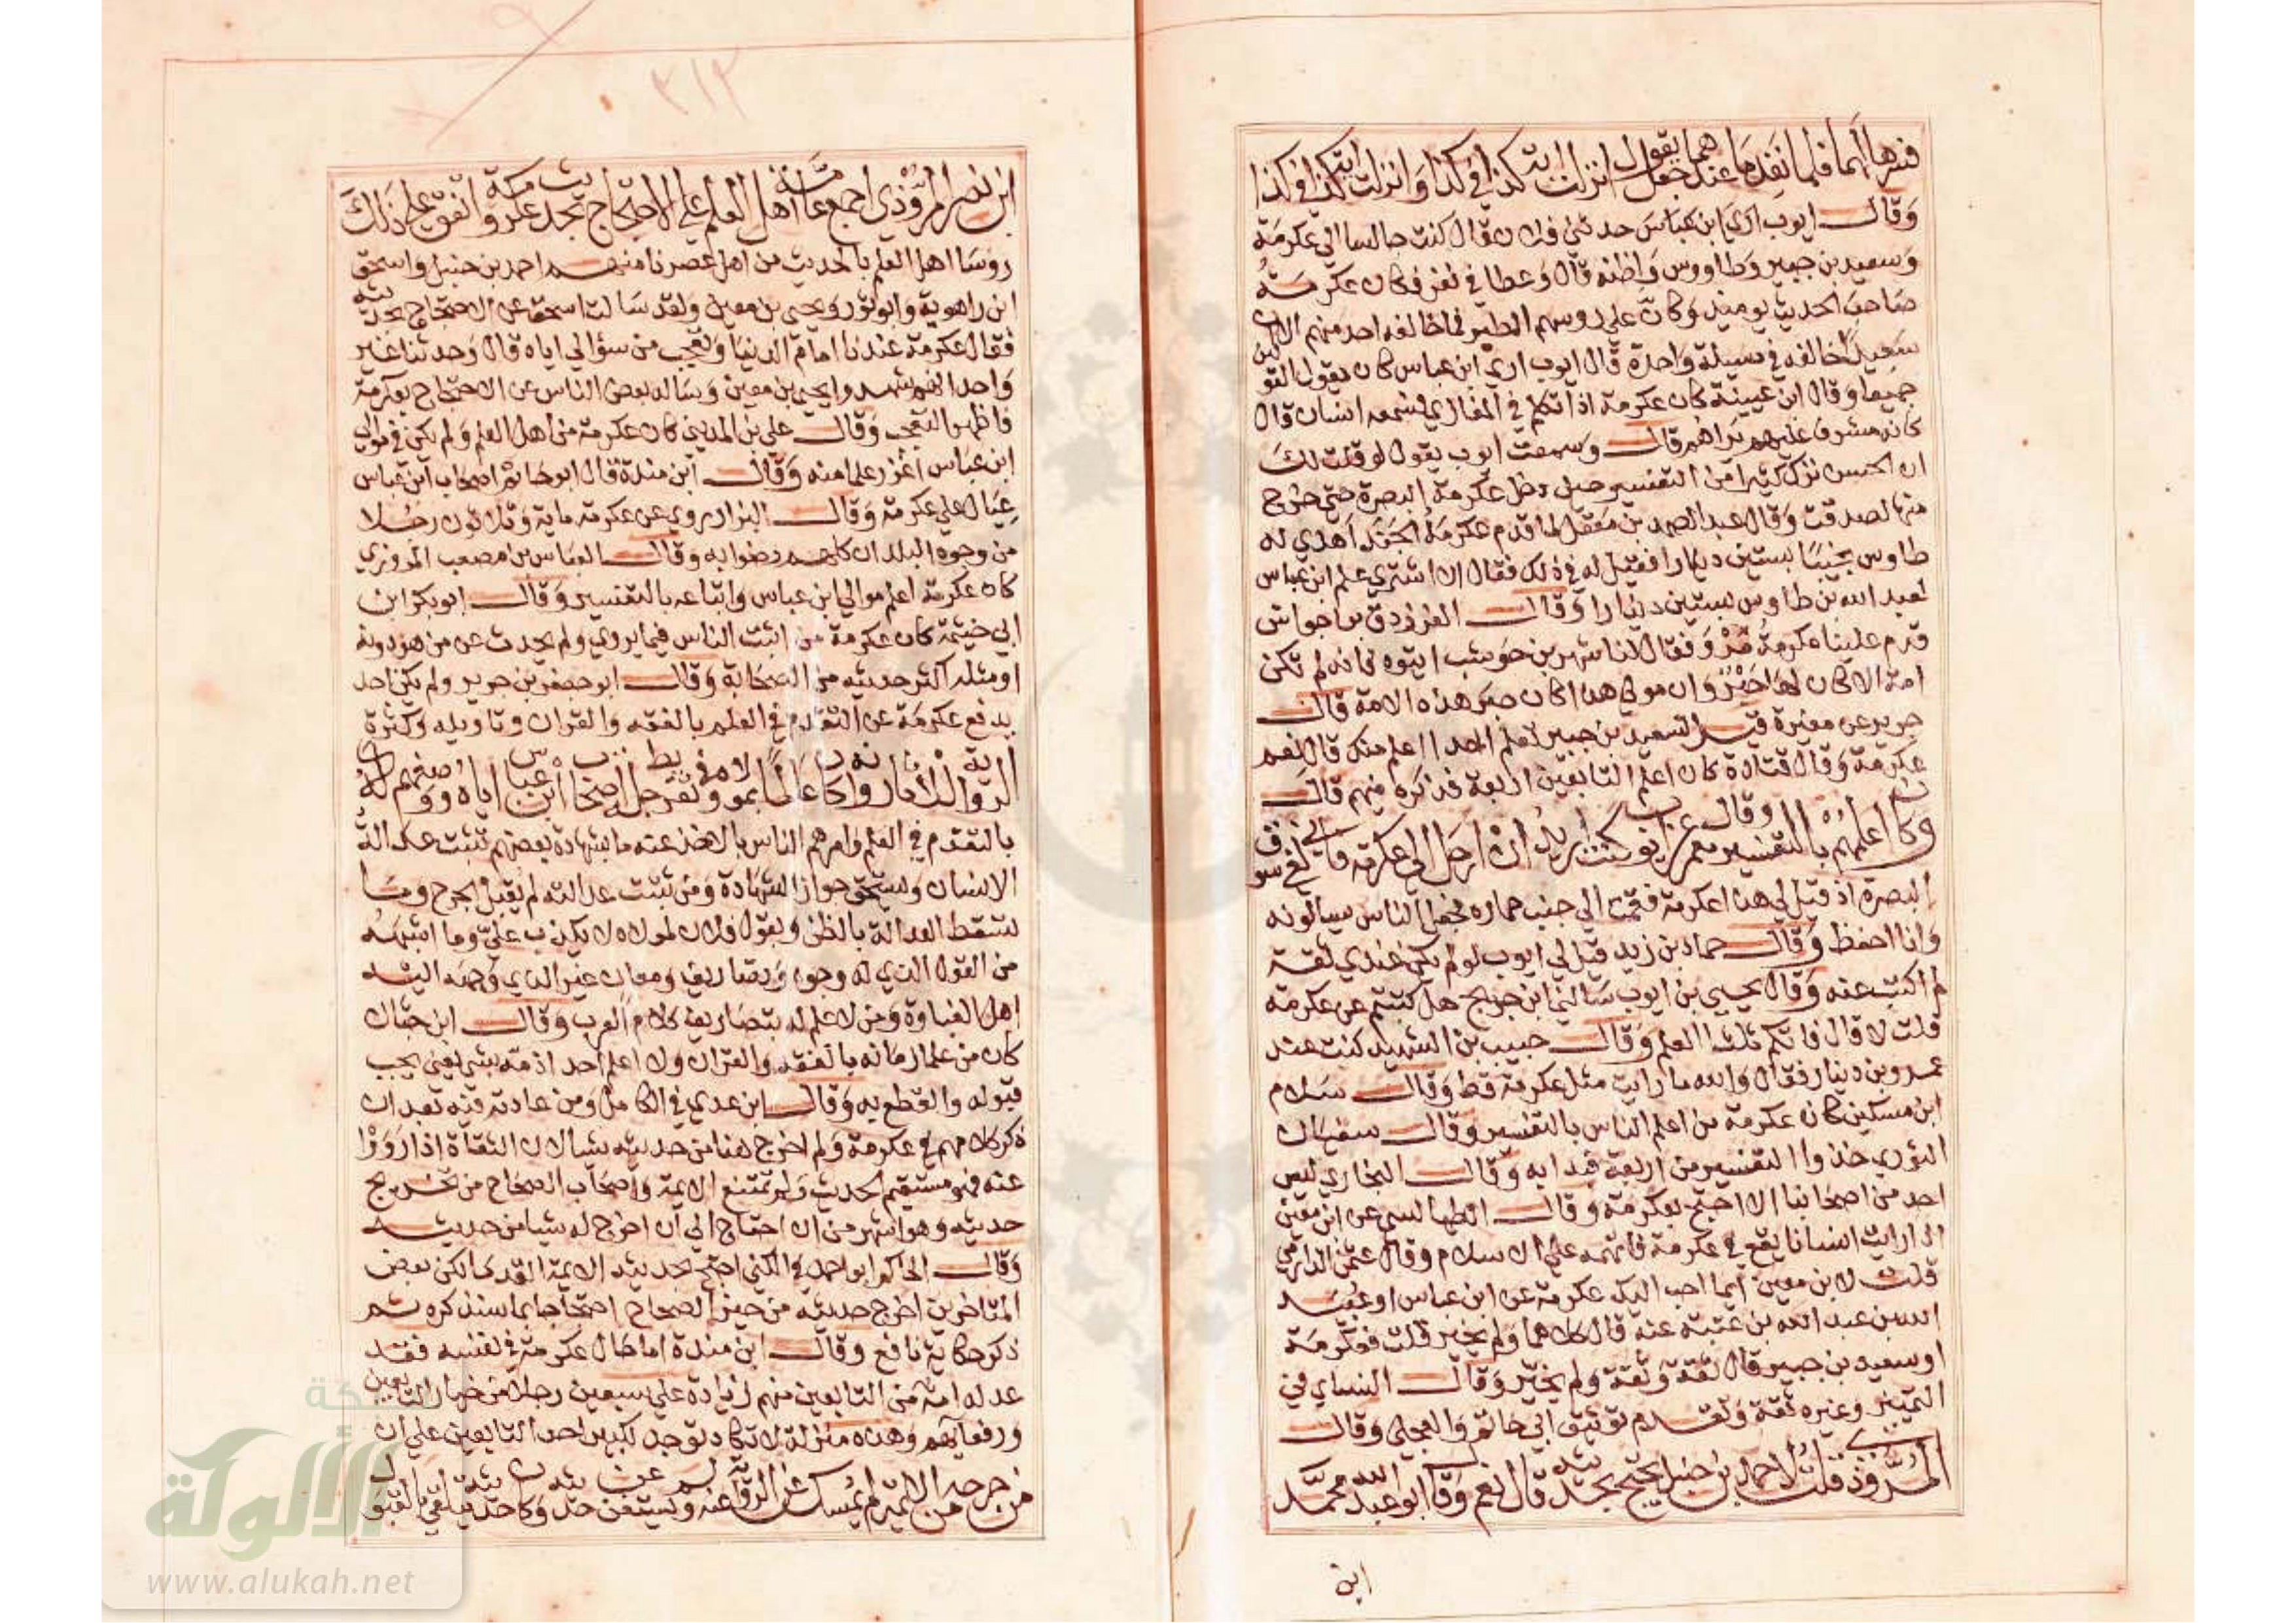 فسرها لهما فلما نفد ما عندهما جعل يقول انزلت اية كذا في كذا وانزلت اية كذا في كذا
وقال ايوب اري ابن عباس حدثني فلان قال كنت جالسا الي عكرمة
وسعيد بن جبير وطاووس واظنه قال وعطا في نفر فكان عكرمة
صاحب الحديث يوميذ وكان علي روسهم الطير فما خالفه احد منهم الا ان
سعيدا خالفه في مسيلة واحدة قال ايوب اري ابن عباس كان يقول القولين
جميعا وقال ابن عيينة كان عكرمة اذا تكلم في المغازي فسمعه انسان قال
كانه مشرف عليهم يراهم قال وسمعت ايوب يقول لو قلت لك
ان الحسن ترك كثيرا من التفسير حين دخل عكرمة البصرة حتي خرج
منها لصدقت وقال عبد الصمد بن معقل لما قدم عكرمة الجند اهدي له
طاوس نجيبا بستين دينارا فقيل له في ذلك فقال الا اشتري علم ابن عباس
لعبد الله بن طاوس بستين دينارا وقال الفرزدق بن اجواش
قدم علينا عكرمة مرو فقال لنا شهر بن حوشب ايتوه فانه لم تكن
امة الا كان لها حبر وان مولي هذا كان حبر هذه الامة قال
جرير عن مغيرة قيل لسعيد بن جبير تعلم احدا اعلم منك قال نعم
عكرمة وقال قتادة كان اعلم التابعين اربعة فذكره منهم قال
وكان اعلمهم بالتفسير وقال معمر عن ايوب كنت اريد ان ارحل الي عكرمة فاني لفي سوق
البصرة اذ قيل لي هذا عكرمة فقمت الي جنب حماره فجعل الناس يسالونه
وانا احفظ وقال حماد بن زيد قيل لي ايوب لو لم يكن عندي ثقة
لم اكتب عنه وقال يحيي بن ايوب سالني ابن جريج هل كتبتم عن عكرمة
قلت لا قال فاتكم ثلث العلم وقال حبيب بن الشهيد كنت عند
عمرو بن دينار فقال والله ما رايت مثل عكرمة قط وقال سلام
ابن مسكين كان عكرمة من اعلم الناس بالتفسير وقال سفيان
الثوري خذوا التفسير من اربعة فبدا به وقال البخاري ليس
احد من اصحابنا الا احتج بعكرمة وقال الطيالسي عن ابن معين
اذا رايت انسانا يقع في عكرمة فاتهمه علي الاسلام وقال عثمن الدارمي
قلت لابن معين ايما احب اليك عكرمة عن ابن عباس او عبيد
الله بن عبد الله بن عتبة عنه قال كلاهما ولم يخير قلت فعكرمة
او سعيد بن جبير قال ثقة وثقة ولم يخير وقال النساي في
التمييز وغيره ثقة وتقدم توثيق ابي حاتم والعجلي وقال
المروذي قلت لاحمد بن حنبل يحتج بحديثه قال نعم وقال ابو عبد الله محمد
ابن
٣١٣
ابن نصر المروزي اجمع عامة اهل العلم علي الاحتجاج بحديث عكرمة واتفق علي ذلك
روسا اهل العلم بالحديث من اهل عصرنا منهم احمد بن حنبل واسحق
ابن راهوية وابو ثور ويحيي بن معين ولقد سالت اسحق عن الاحتجاج بحديثه
فقال عكرمة عندنا امام الدنيا وتعجب من سؤالي اياه قال وحدثنا غير
واحد انهم شهدوا يحيي بن معين وساله بعض الناس عن الاحتجاج بعكرمة
فاظهر التعجب وقال علي بن المديني كان عكرمة من اهل العلم ولم يكن في موالي
ابن عباس اغزر علما منه وقال ابن مندة قال ابو حاتم اصحاب ابن عباس
عيال علي عكرمة وقال البزار روي عن عكرمة ماية وثلاثون رجلا
من وجوه البلدان كلهم رضوا به وقال العباس بن مصعب المروزي
كان عكرمة اعلم موالي ابن عباس واتباعه بالتفسير وقال ابو بكر ابن
ابي خيثمة كان عكرمة من اثبت الناس فيما يروي ولم يحدث عن من هو دونه
او مثله اكثر حديثه من الصحابة وقال ابو جعفر بن جرير ولم يكن احد
يدفع عكرمة عن التقدم في العلم بالفقه والقران وتاويله وكثرة
الرواية للاثار وانه كان عالما بمولاه وفي تقريظ جل اصحاب ابن عباس اياه ووصفهم له
بالتقدم في العلم وامرهم الناس بالاخذ عنه ما بشهادة بعضهم تثبت عدالة
الانسان ويستحق جواز الشهادة ومن ثبتت عدالته لم يقبل الجرح وما
تسقط العدالة بالظن وبقول فلان لمولاه لا يكذب علي وما اشبهه
من القول الذي له وجوه وتصاريف ومعان غير الذي وجهه اليه
اهل الغباوة ومن لا علم له بتصاريف كلام العرب وقال ابن حبان
كان من علما زمانه بالفقه والقران ولا اعلم احد اذمه بشي يعني يجب
قبوله والقطع به وقال ابن عدي في الكامل ومن عادته فيه بعد ان
ذكر كلامهم في عكرمة ولم اخرج هنا من حديثه شيا لان الثقاة اذا رووا
عنه فهو مستقيم الحديث ولم تمتنع الايمة واصحاب الصحاح من تخريج
حديثه وهو اشهر من ان احتاج الي ان اخرج له شيا من حديثه
وقال الحاكم ابو احمد في الكني احتج بحديثه الايمة القدما لكن بعض
المتاخرين اخرج حديثه من حيز الصحاح احتجاجا بما سنذكره ثم
ذكر حكاية نافع وقال ابن مندة اما حال عكرمة في نفسه فقد
عدله امة من التابعين منهم زيادة علي سبعين رجلا من خيار التابعين
ورفعايهم وهذه منزلة لا تكاد توجد لكبير احد التابعين علي ان
من جرحه من الايمة لم يمسك عن الرواية عنه ولم يستغن عن حديثه وكان حديثه متلقي بالقبول
شبكة
الألوكة
www.alukah.net